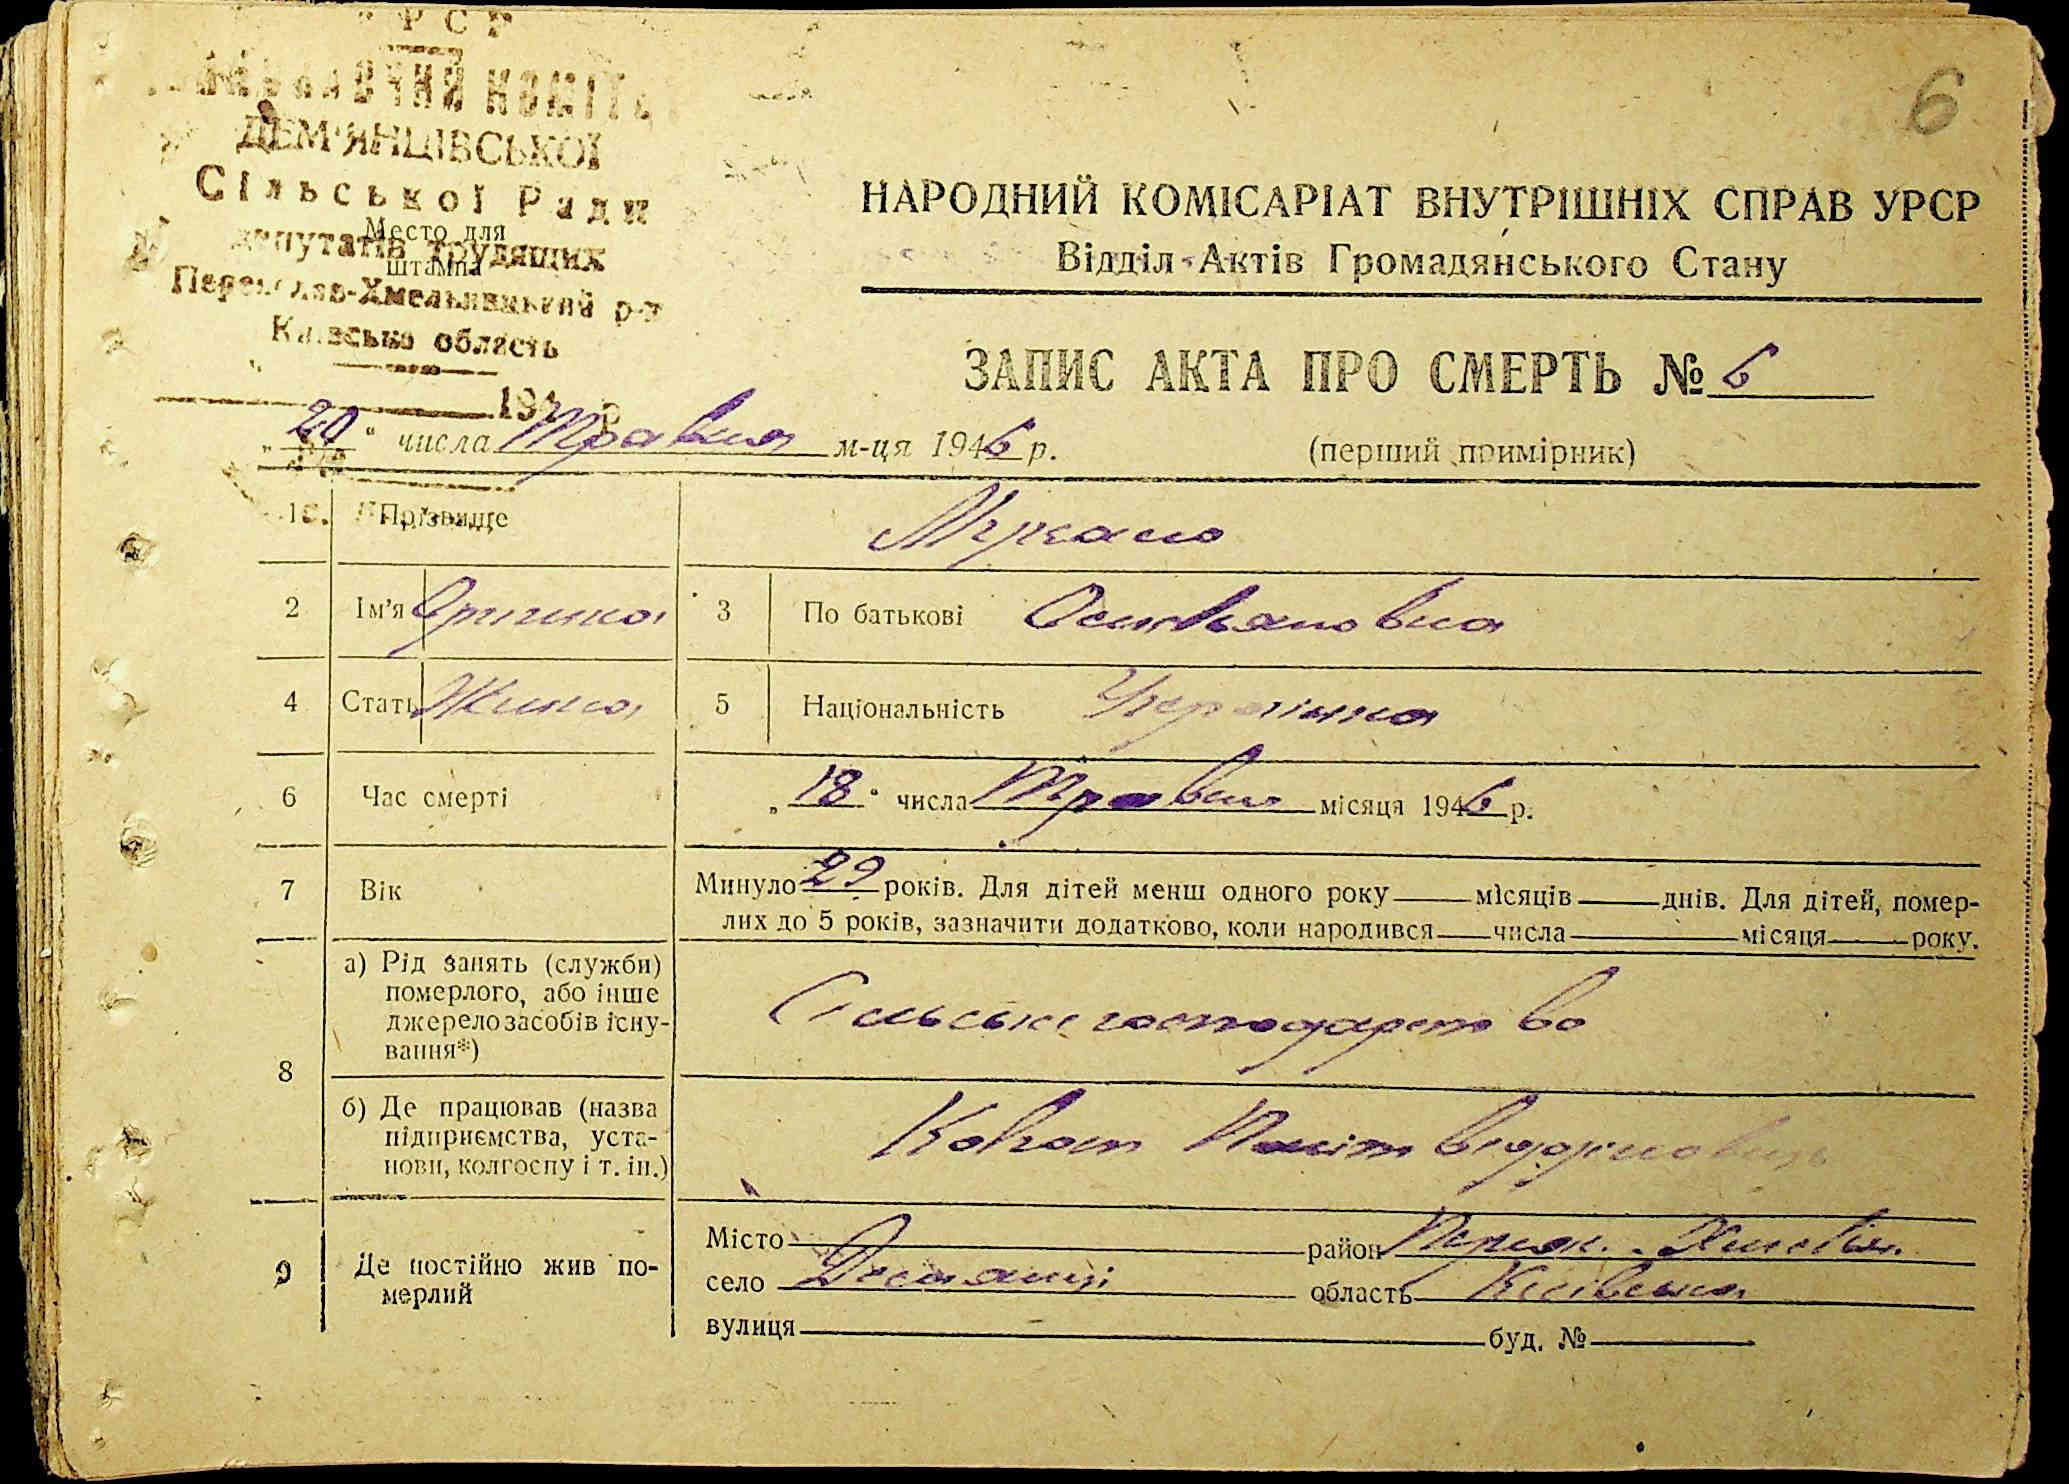 6
РСР
ДЕМ'ЯНЦІВСЬКОЇ
Сільської Ради
Место для
депутатів трудящих
штампа
Переяслав-Хмельницький р-н
Київська область
194 р
НАРОДНИЙ КОМІСАРІАТ ВНУТРІШНІХ СПРАВ УРСР
Відділ Актів Громадянського Стану
ЗАПИС АКТА ПРО СМЕРТЬ № 6
„20“ числа Травня м-ця 1946 р.
(перший примірник)
1 Прізвище
2 Ім'я 3 По батькові
4 Стать Жіноча 5 Національність Українка
6 Час смерті „18“ числа Травня місяця 1946 р.
7 Вік Минуло 29 років. Для дітей менш одного року місяців днів. Для дітей, помер-
лих до 5 років, зазначити додатково, коли народився числа місяця року.
8 а) Рід занять (служби)
померлого, або інше
джерело засобів існу-
вання*)
Сільське господарство
б) Де працював (назва
підприємства, уста-
нови, колгоспу і т. ін.)
9 Де постійно жив по-
мерлий
Місто район Переяс. - Хмельн.
село Демянці область Київська
вулиця буд. №